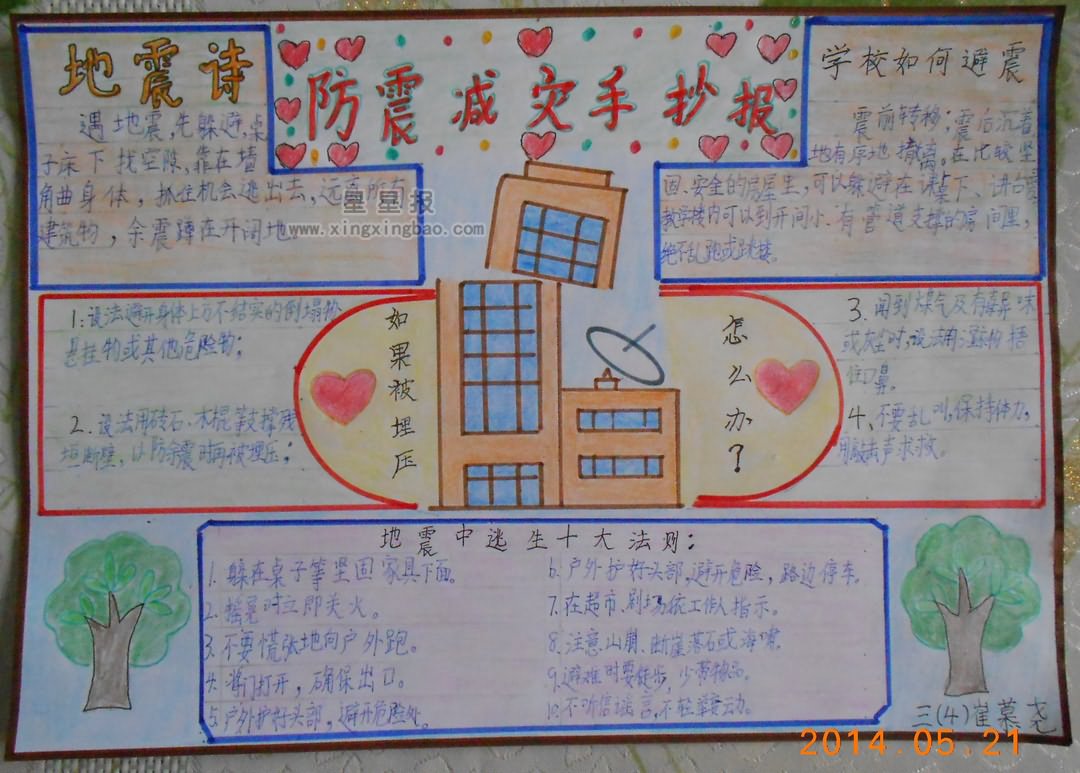 地震诗
遇地震,先躲避,桌
子床下找空隙,靠在墙
角曲身体,抓住机会逃出去,远离所有
建筑物,余震蹲在开阔地。
防震减灾手抄报
学校如何避震
震前转移,震后沉着
地有序地撤离。在比较坚
固、安全的房屋里,可以躲避在课桌下、讲台旁
教学楼内可以到开间小、有管道支撑的房间里,
绝不乱跑或跳楼。
星星报
www.xingxingbao.com
1:设法避开身体上方不结实的倒塌物
悬挂物或其他危险物;
2.设法用砖石、木棍等支撑残
垣断壁,以防余震时再被埋压;
如果被埋压
怎么办?
3.闻到煤气及有毒异味
或灰尘时,设法用湿物捂
住口鼻。
4、不要乱叫,保持体力,
用敲击声求救。
地震中逃生十大法则:
1.躲在桌子等坚固家具下面。
2.摇晃时立即关火。
3.不要慌张地向户外跑。
4.将门打开,确保出口。
5.户外护好头部,避开危险处。
6.户外护好头部,避开危险,路边停车。
7.在超市、剧场依工作人指示。
8.注意山崩、断崖落石或海啸。
9.避难时要徒步,少带物品。
10.不听信谣言,不轻举妄动。
三(4)崔慕尧
2014.05.21